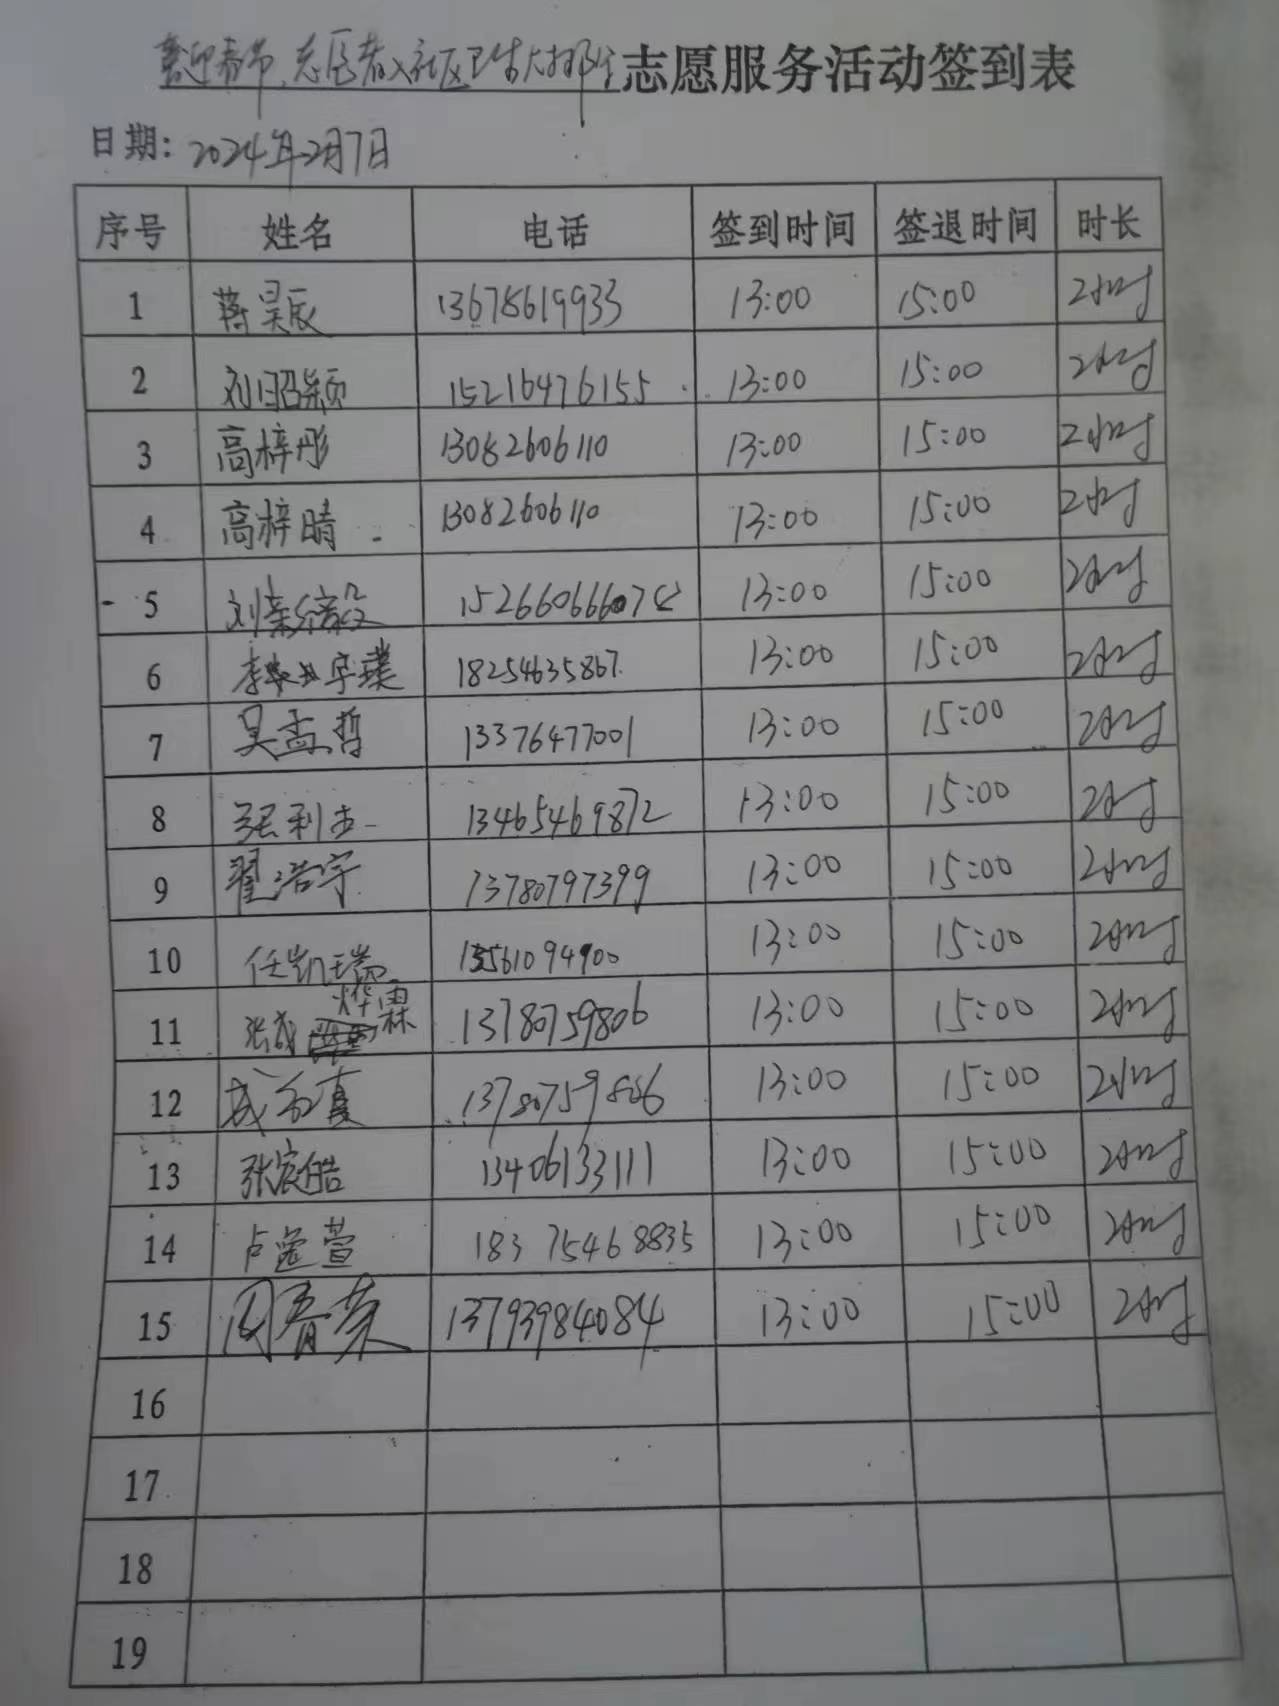 喜迎春节、志愿者入社区卫生大扫除 志愿服务活动签到表
日期: 2024年2月7日
序号 姓名 电话 签到时间 签退时间 时长
1 蒋昊辰 13678619933 13:00 15:00 2小时
2 刘昭颖 15216476155 13:00 15:00 2小时
3 高梓彤 13082606110 13:00 15:00 2小时
4 高梓晴 13082606110 13:00 15:00 2小时
5 刘 13:00 15:00 2小时
6 李 宇璞 18254635867 13:00 15:00 2小时
7 吴孟哲 13376477001 13:00 15:00 2小时
8 张利杰 13465469872 13:00 15:00 2小时
9 翟浩宇 13780797399 13:00 15:00 2小时
10 任凯瑞 13561094900 13:00 15:00 2小时
11 张成烨霖 13780759806 13:00 15:00 2小时
12 成 真 13780759806 13:00 15:00 2小时
13 张宸皓 13406133111 13:00 15:00 2小时
14 卢 萱 18375468835 13:00 15:00 2小时
15 周春荣 13793984084 13:00 15:00 2小时
16
17
18
19